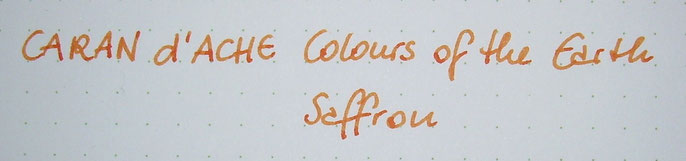 CARAN d'ACHE Colours of the Earth
Saffron